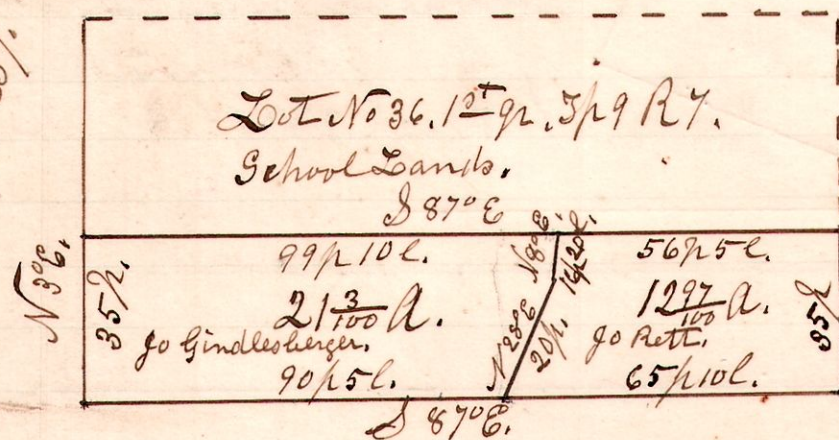 Lot No 36. 1st qr. Tp 9 R 7.
School Lands.
S 87° E
N 3° E.
35 p.
99 p 10 l.
21 3/100 A.
Jo Gindlesberger.
90 p 5 l.
N 8° E.
N 28° E
20 p.
56 p 5 l.
12 97/100 A.
Jo Rett.
65 p 10 l.
35 p
S 87° E.